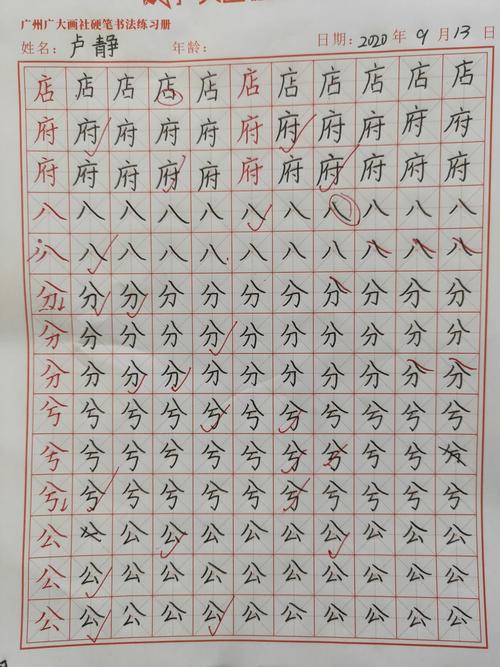 广州广大画社硬笔书法练习册
姓名：卢静 年龄： 日期：2020年9月13日
店店店店店店店店店店店
府府府府府府府府府府府
府府府府府府府府府府府
八八八八八八八八八八八
八八八八八八八八八八八
分分分分分分分分分分分
分分分分分分分分分分分
分分分分分分分分分分分
兮兮兮兮兮兮兮兮兮兮兮
兮兮兮兮兮兮兮兮兮兮
兮兮兮兮兮兮兮兮兮兮兮
公公公公公公公公公公
公公公公公公公公公公公
公公公公公公公公公公公